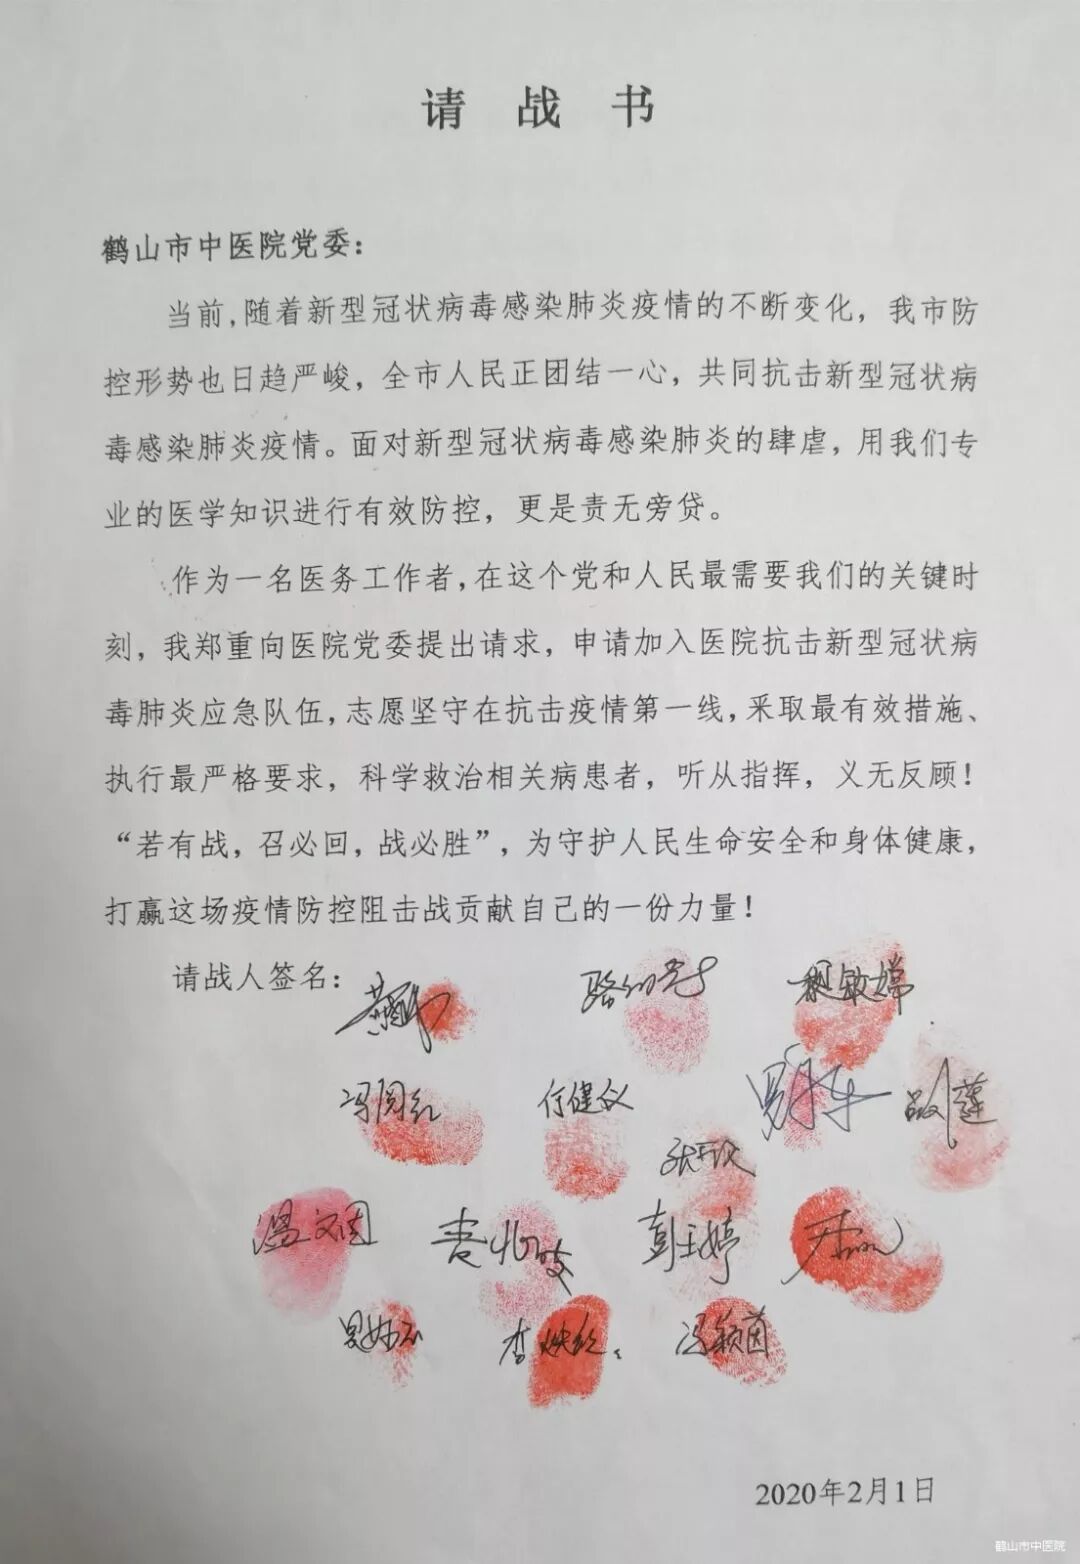 请战书
鹤山市中医院党委：
当前,随着新型冠状病毒感染肺炎疫情的不断变化，我市防
控形势也日趋严峻，全市人民正团结一心，共同抗击新型冠状病
毒感染肺炎疫情。面对新型冠状病毒感染肺炎的肆虐，用我们专
业的医学知识进行有效防控，更是责无旁贷。
作为一名医务工作者,在这个党和人民最需要我们的关键时
刻，我郑重向医院党委提出请求，申请加入医院抗击新型冠状病
毒肺炎应急队伍,志愿坚守在抗击疫情第一线,采取最有效措施、
执行最严格要求，科学救治相关病患者，听从指挥，义无反顾！
“若有战，召必回，战必胜”，为守护人民生命安全和身体健康，
打赢这场疫情防控阻击战贡献自己的一份力量！
请战人签名：
何健仪
温文困
彭玉婷
冯颖茵
2020年2月1日
鹤山市中医院